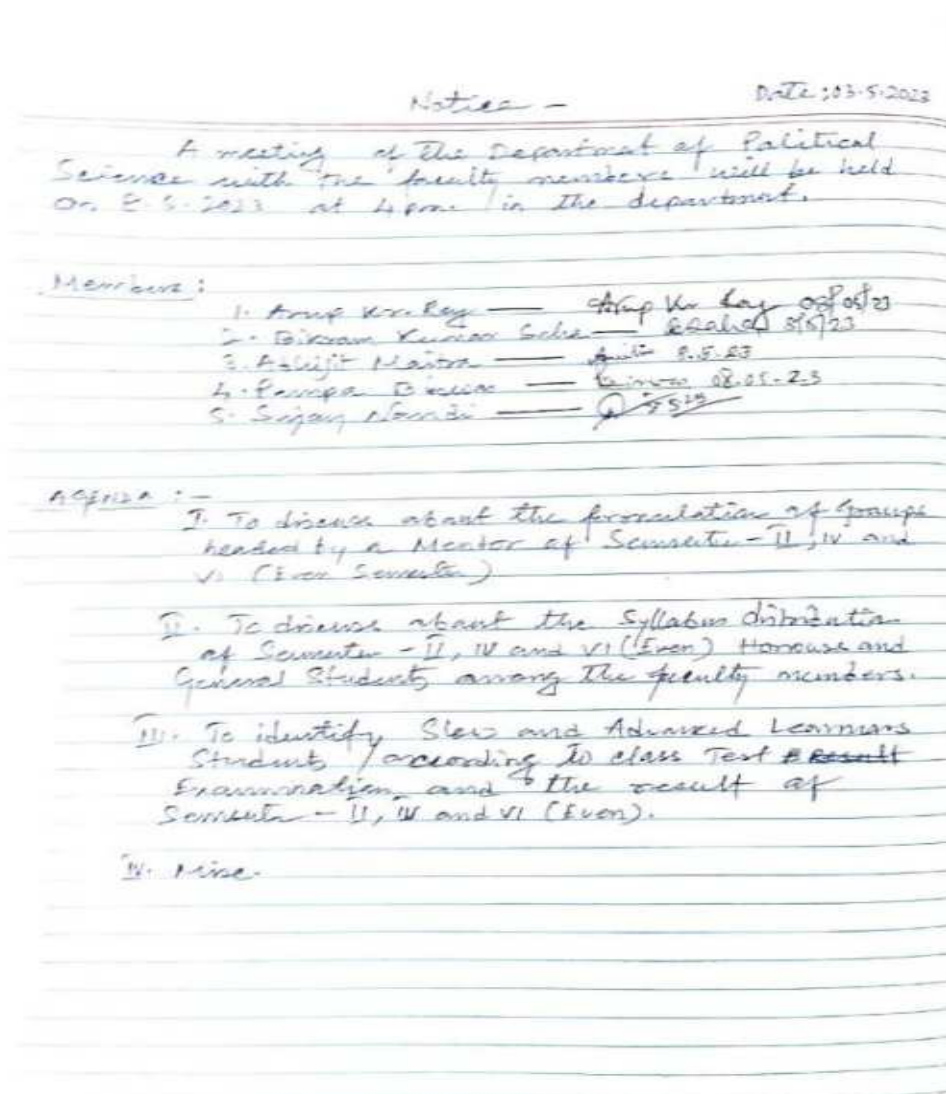 Notice - Date: 03.5.2023
A meeting of the Department of Political
Science with the faculty members will be held
On 8.5.2023 at 4 p.m. in the department.
Members:
1. Arup Kr. Ray — Arup Kr Ray 08/05/23
2. Bikram Kumar Saha — BSaha 8/5/23
3. Abhijit Maitra — 8.5.23
4. Pampa Biswas — Biswas 08.05.23
5. Sujay Nandi —
AGENDA :-
I. To discuss about the formulation of Groups
headed by a Mentor of Semester - II, IV and
VI (Even Semester)
II. To discuss about the Syllabus distribution
of Semester - II, IV and VI (Even) Honours and
General Students among the faculty members.
III. To identify Slow and Advanced Learners
Students according to class Test Result
Examination and the result of
Semester - II, IV and VI (Even).
IV. Misc.